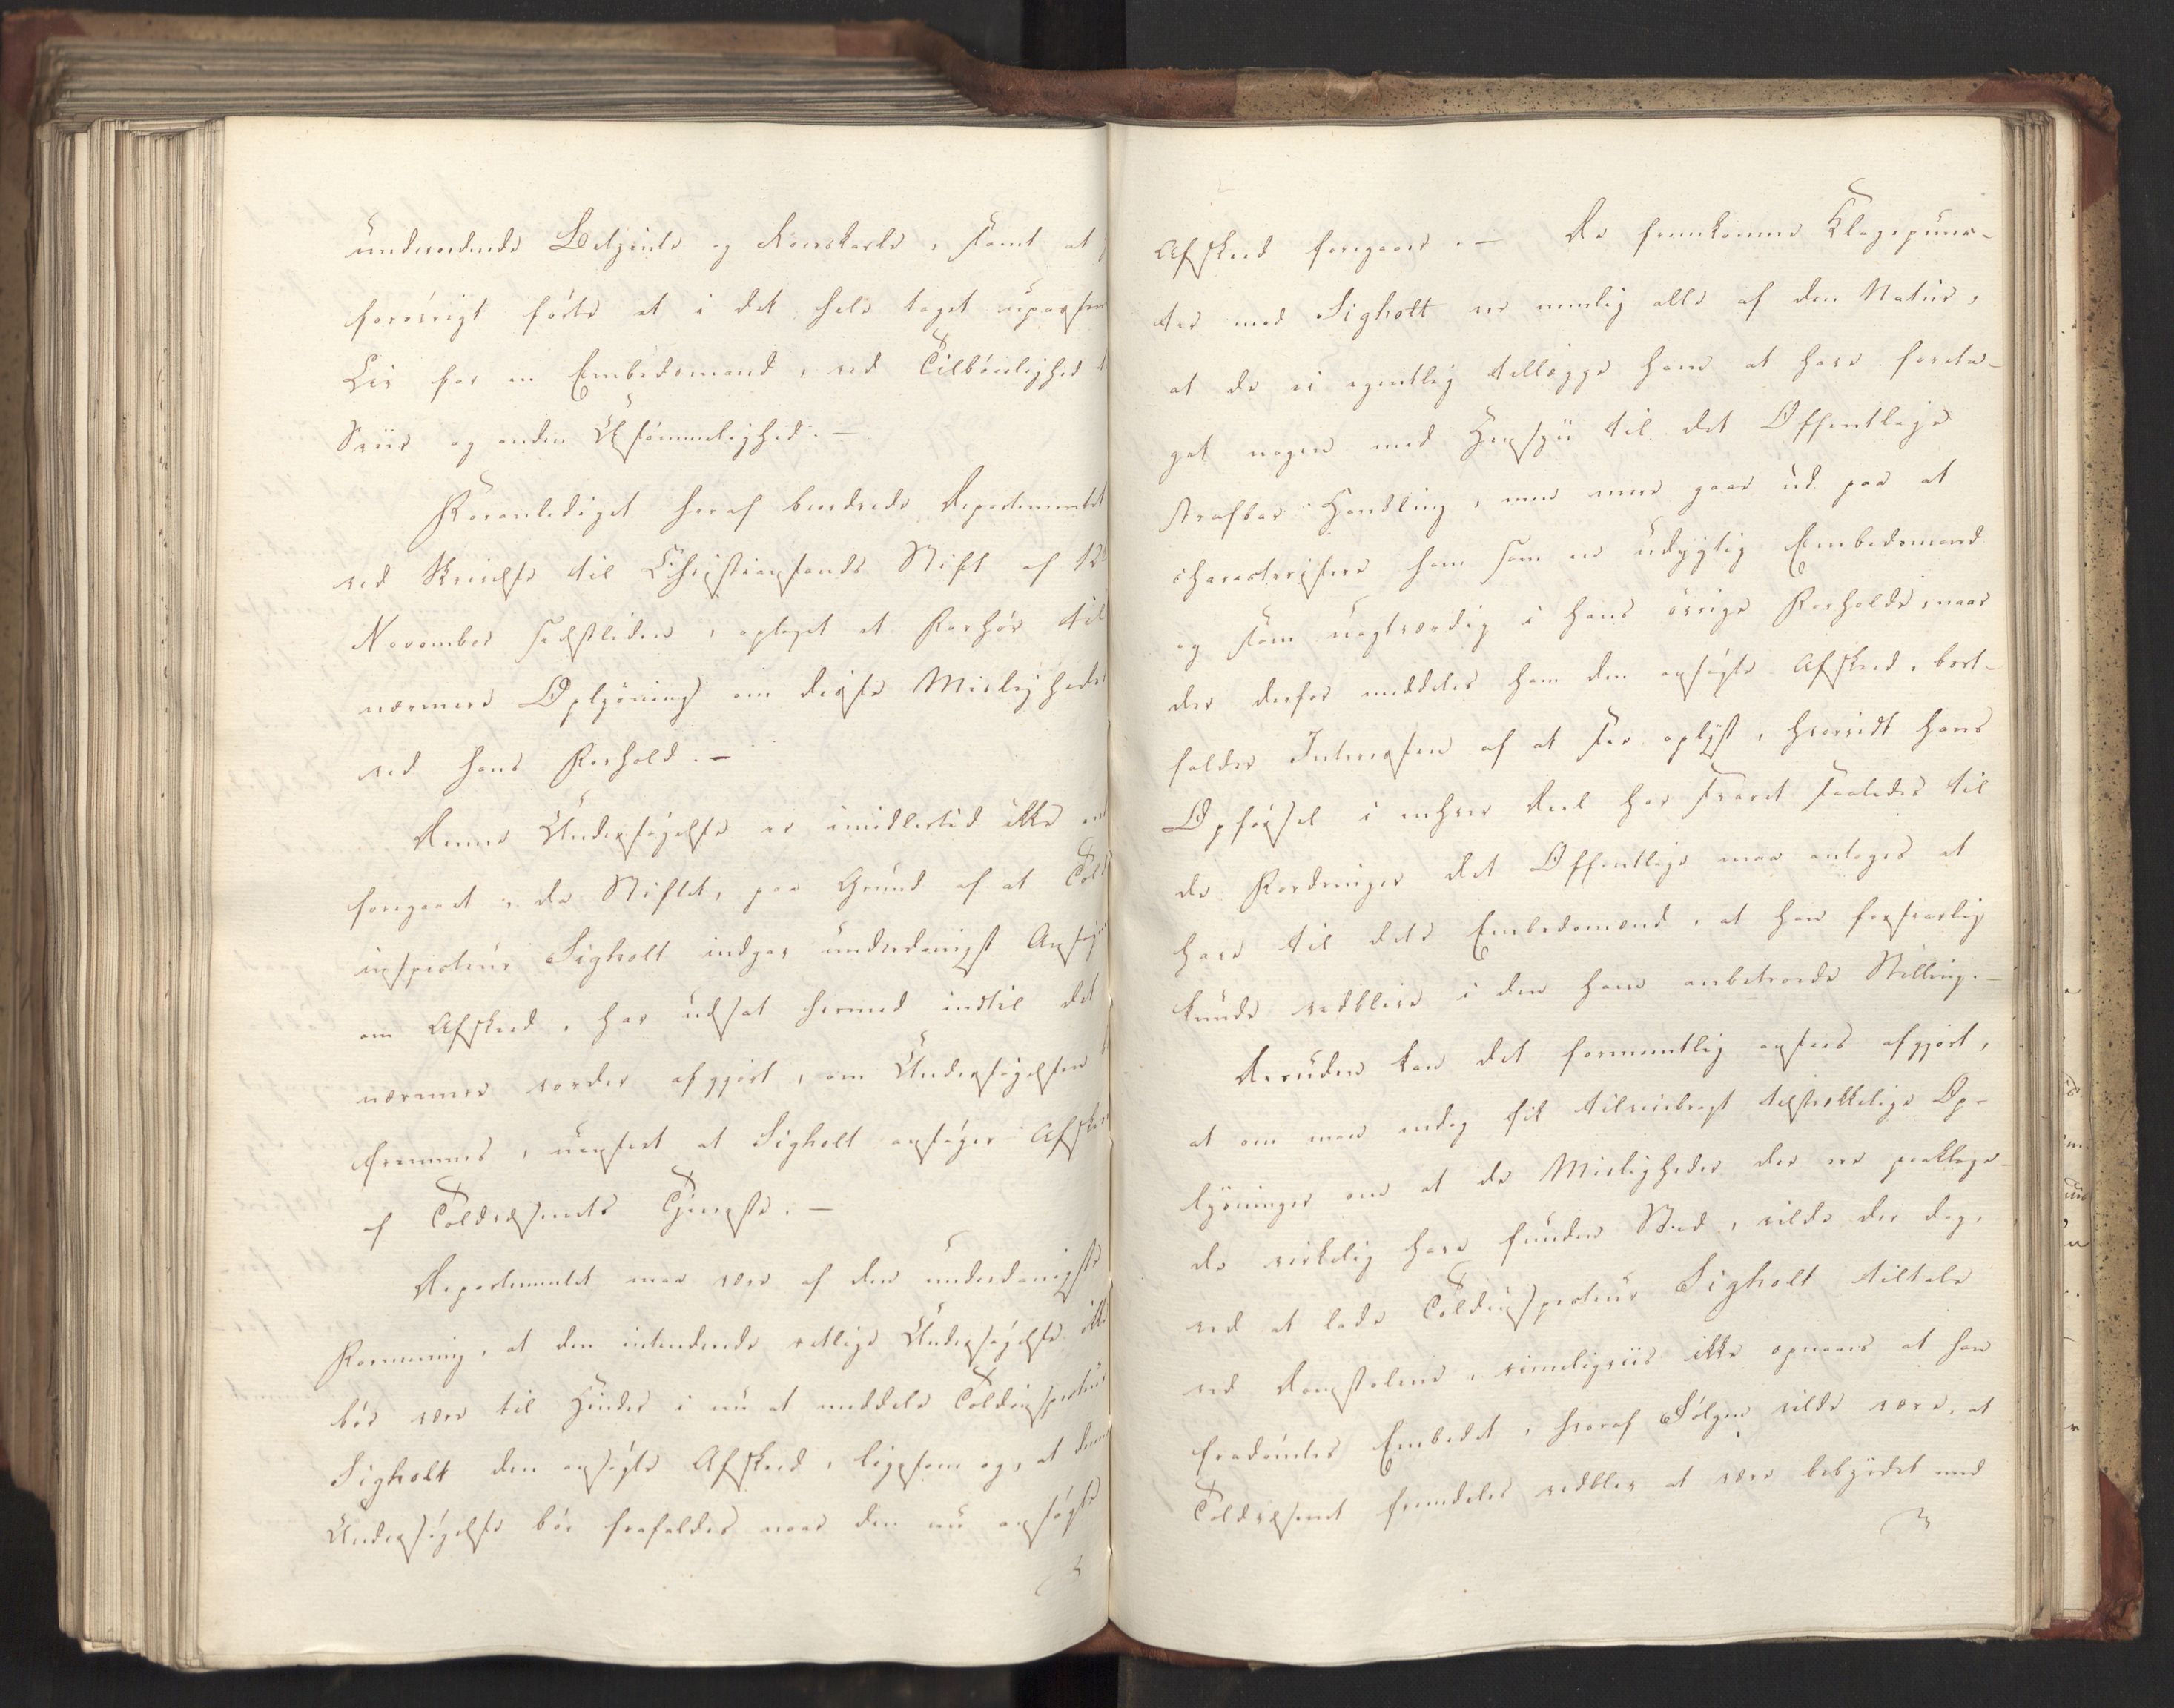 underordnede Betjente og Roerskarle, samt at
forøvrigt førte et i det hele taget upassen
Liv for en Embedsmand, ved Tilbøielighed
Sviir og anden Usømmelighed. —
Foranlediget heraf beordrede Departementet
ved Skrivelse til Christianssands Stift af 12
November sidstleden, optaget et Forhør til
nærmere Oplysning om disse Misligheder
ved hans Forhold. —
Denne Undersøgelse er imidlertid ikke
foregaaet, da Stiftet, paa Grund af at Told
inspecteur Sigholt indgav underdanigst Ansøg
om Afskeed, har udsat hermed indtil det
nærmere vorder afgjort, om Undersøgelsen
fremmes, uanseet at Sigholt ansøger Afskee
af Toldvæsenets Tjeneste. —
Departementet maa være af den underdanigste
Formening, at den intenderede retlige Undersøgelse ikke
bør være til Hinder i nu at meddele Toldinspecteur
Sigholt den ansøgte Afskeed, ligesom og, at denne
Undersøgelse bør frafaldes naar den nu ansøgte
Afskeed foregaaer. — De fremkomne Klagepunc-
ter mod Sigholt er nemlig alle af den Natur,
at de ei egentlig tillægge ham at have foreta-
get nogen med Hensyn til det Offentlige
strafbar Handling, men mere gaae ud paa at
characterisere ham som en udygtig Embedsmand
og som uagtværdig i hans øvrige Forholde, naar
der derfor meddeles ham den ansøgte Afskeed, bort-
falder Interessen af at see oplyst, hvorvidt hans
Opførsel i enhver Deel har svaret saaledes til
de Fordringer det Offentlige maa antages at
have til dets Embedsmænd, at han forsvarlig
kunde vedblive i den ham anbetroede Stilling. —
Desuden kan det formeentlig ansees afgjort,
at om man endog fik tilveiebragt tilstrækkelige Op-
lysninger om at de Misligheder der ere paaklage-
de virkelig have funden Sted, vilde der dog,
ved at lade Toldinspecteur Sigholt tiltale
ved Domstolene, rimeligviis ikke opnaaes at han
fradømtes Embedet, hvoraf Følgen vilde være, at
Toldvæsenet fremdeles vedblev at være bebyrdet med